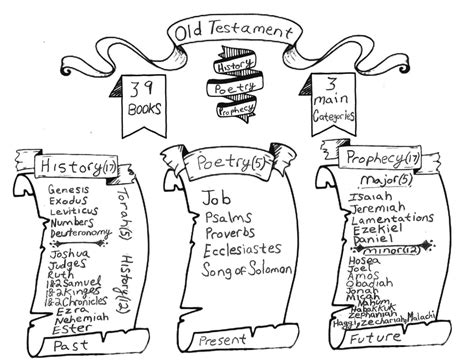 Old Testament
History
Poetry
Prophecy
39
BOOKS
3
main
Categories
History(17)
Genesis
Exodus
Leviticus
Numbers
Deuteronomy
Torah(5)
Joshua
Judges
Ruth
1&2 Samuel
1&2 Kings
1&2 Chronicles
Ezra
Nehemiah
Ester
History(12)
Past
Poetry(5)
Job
Psalms
Proverbs
Ecclesiastes
Song of Solomon
Present
Prophecy(17)
Major(5)
Isaiah
Jeremiah
Lamentations
Ezekiel
Daniel
minor(12)
Hosea
Joel
Amos
Obadiah
Jonah
Micah
Nahum
Habakkuk
Zephaniah
Haggi, Zechariah, Malachi
Future